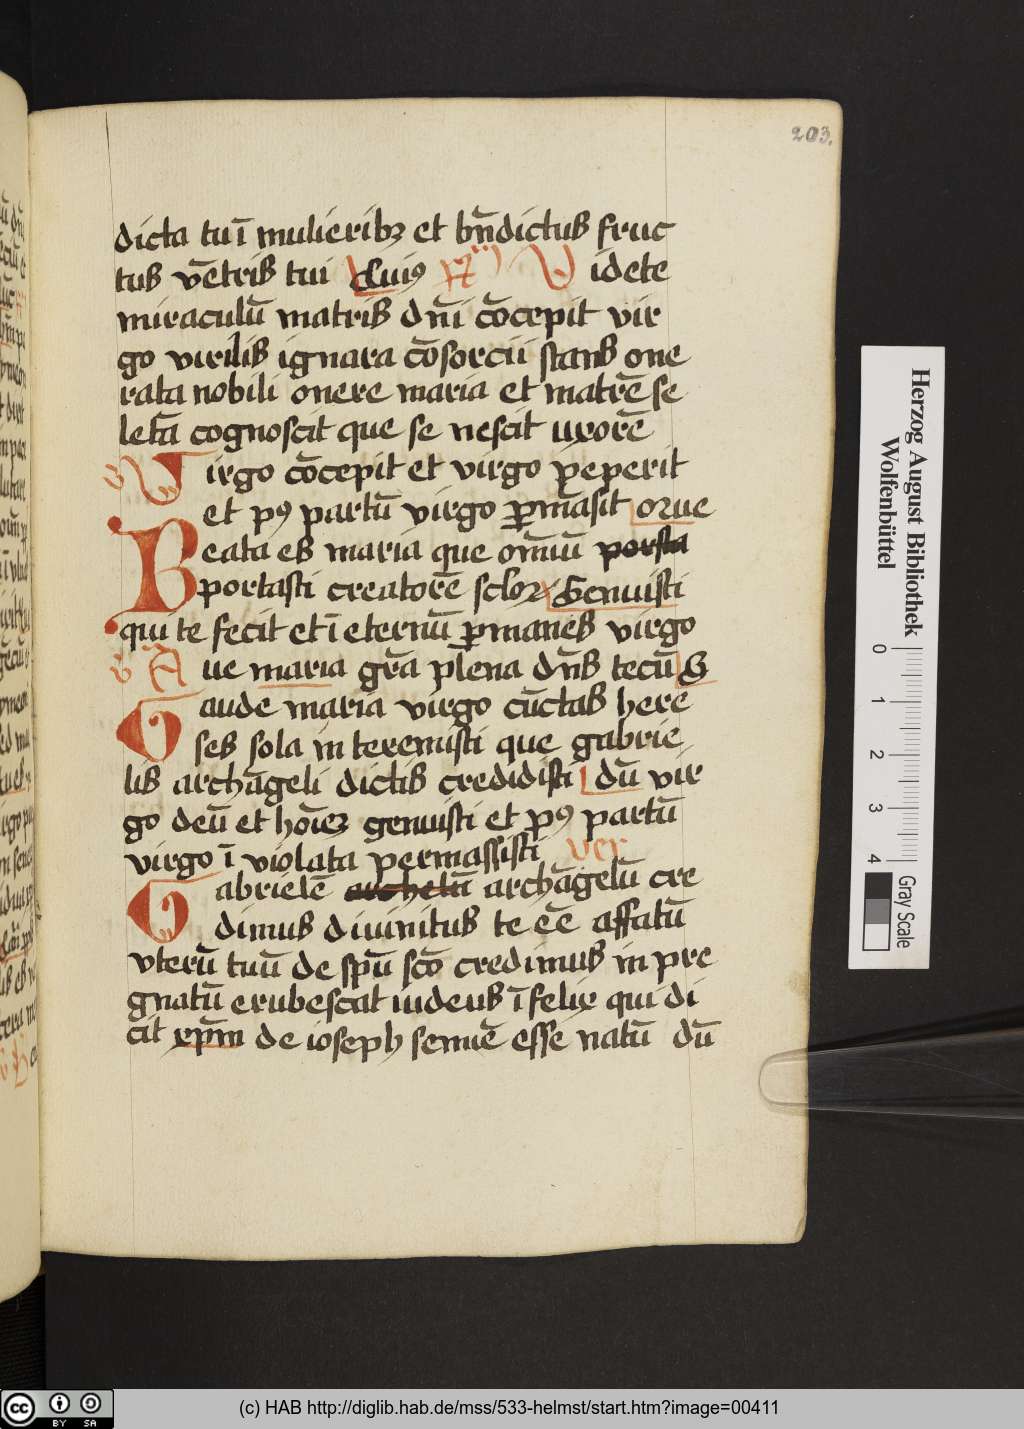 203.
dicta tu ī mulieribꝫ et bn̄dictus fruc
tus vētris tui Cuiꝰ V idete
miraculū matris dn̄i cōcepit vir
go virilis ignara cōsorcii stans one
rata nobili onere maria et matrē se
letā cognoscit que se nescit uxorē
V irgo cōcepit et virgo peperit
et pꝰ partū virgo ꝑmāsit
B eata es maria que om̄iū porsta
portasti creatorē sclorꝝ Genuisti
qui te fecit et ī eternū ꝑmanes virgo
A ue maria gr̄a plena dn̄s tecū G
G aude maria virgo cūctas here
ses sola in teremisti que gabrie
lis archāgeli dictis credidisti dū vir
go deū et hoīeꝫ genuisti et pꝰ partū
virgo ī violata permassisti ver
G abrielē archelū archāgelū cre
dimus diuinitus te eē affatū
vterū tuū de spū scō credimus in pre
gnatū erubescat iudeus ī felix qui di
cit xp̄m de ioseph semiē esse natū dū
Herzog August Bibliothek
Wolfenbüttel
0 1 2 3 4
Gray Scale
cc BY SA
(c) HAB http://diglib.hab.de/mss/533-helmst/start.htm?image=00411